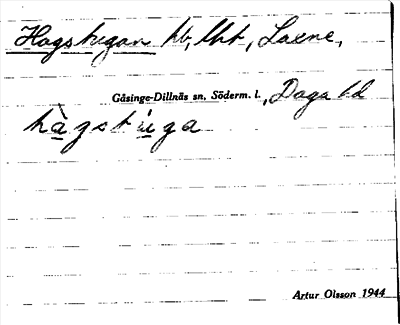 Hagstugan hb, lht, Laxne,
Gåsinge-Dillnäs sn, Söderm. l., Daga hd
hàgstuga
Artur Olsson 1944